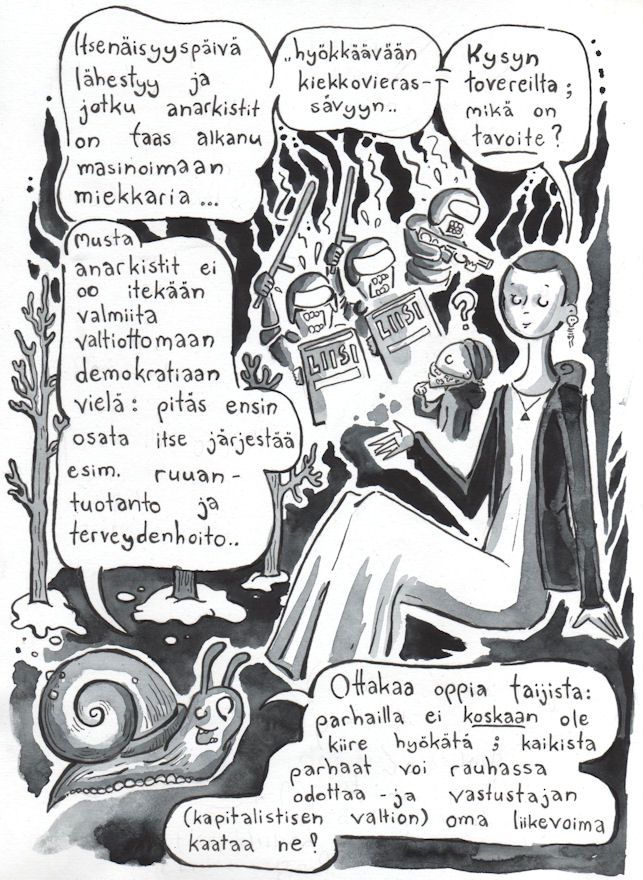 Itsenäisyyspäivä
lähestyy ja
jotku anarkistit
on taas alkanu
masinoimaan
miekkaria ...
..hyökkäävään
kiekkovieras-
sävyyn..
Kysyn
tovereilta ;
mikä on
tavoite ?
musta
anarkistit ei
oo itekään
valmiita
valtiottomaan
demokratiaan
vielä : pitäs ensin
osata itse järjestää
esim. ruuan-
tuotanto ja
terveydenhoito..
LIISI
LIISI
?
Ottakaa oppia taijista:
parhailla ei koskaan ole
kiire hyökätä ; kaikista
parhaat voi rauhassa
odottaa - ja vastustajan
(kapitalistisen valtion) oma liikevoima
kaataa ne !